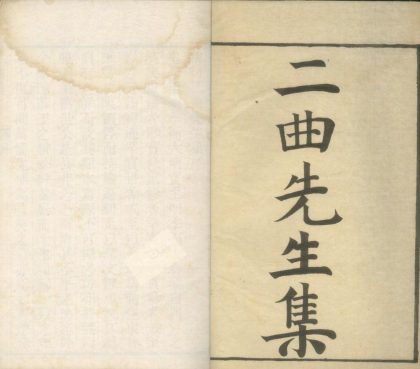 二曲先生集